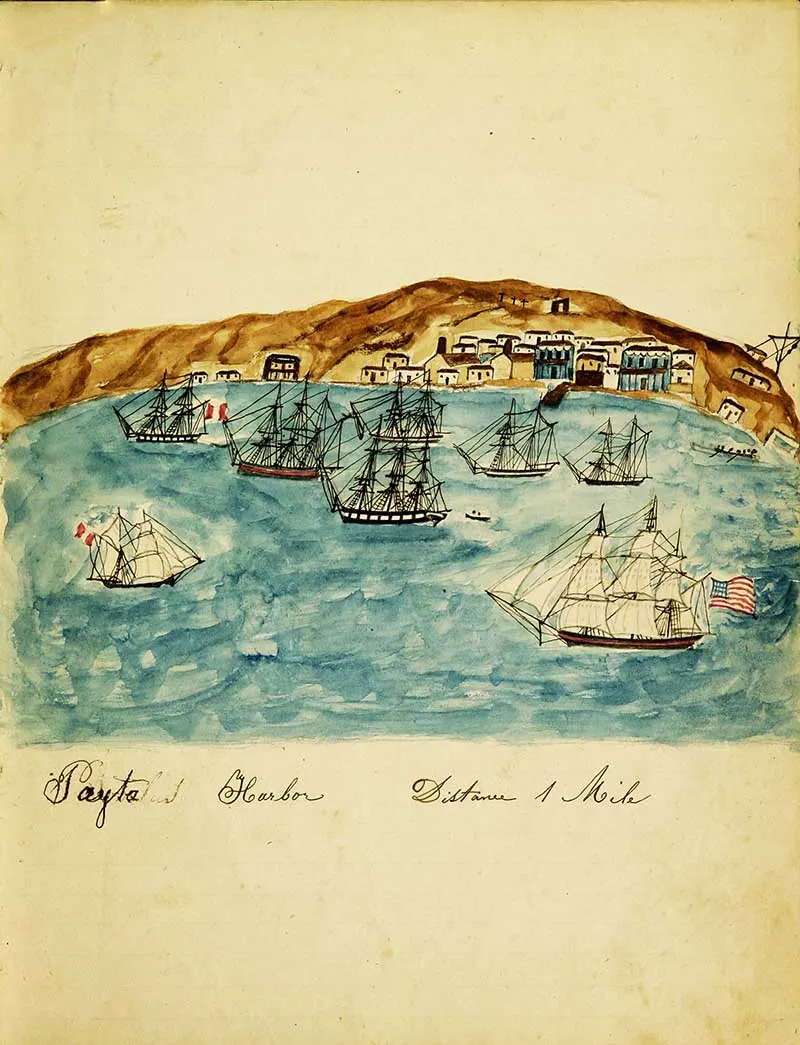 Payta Harbor Distance 1 Mile